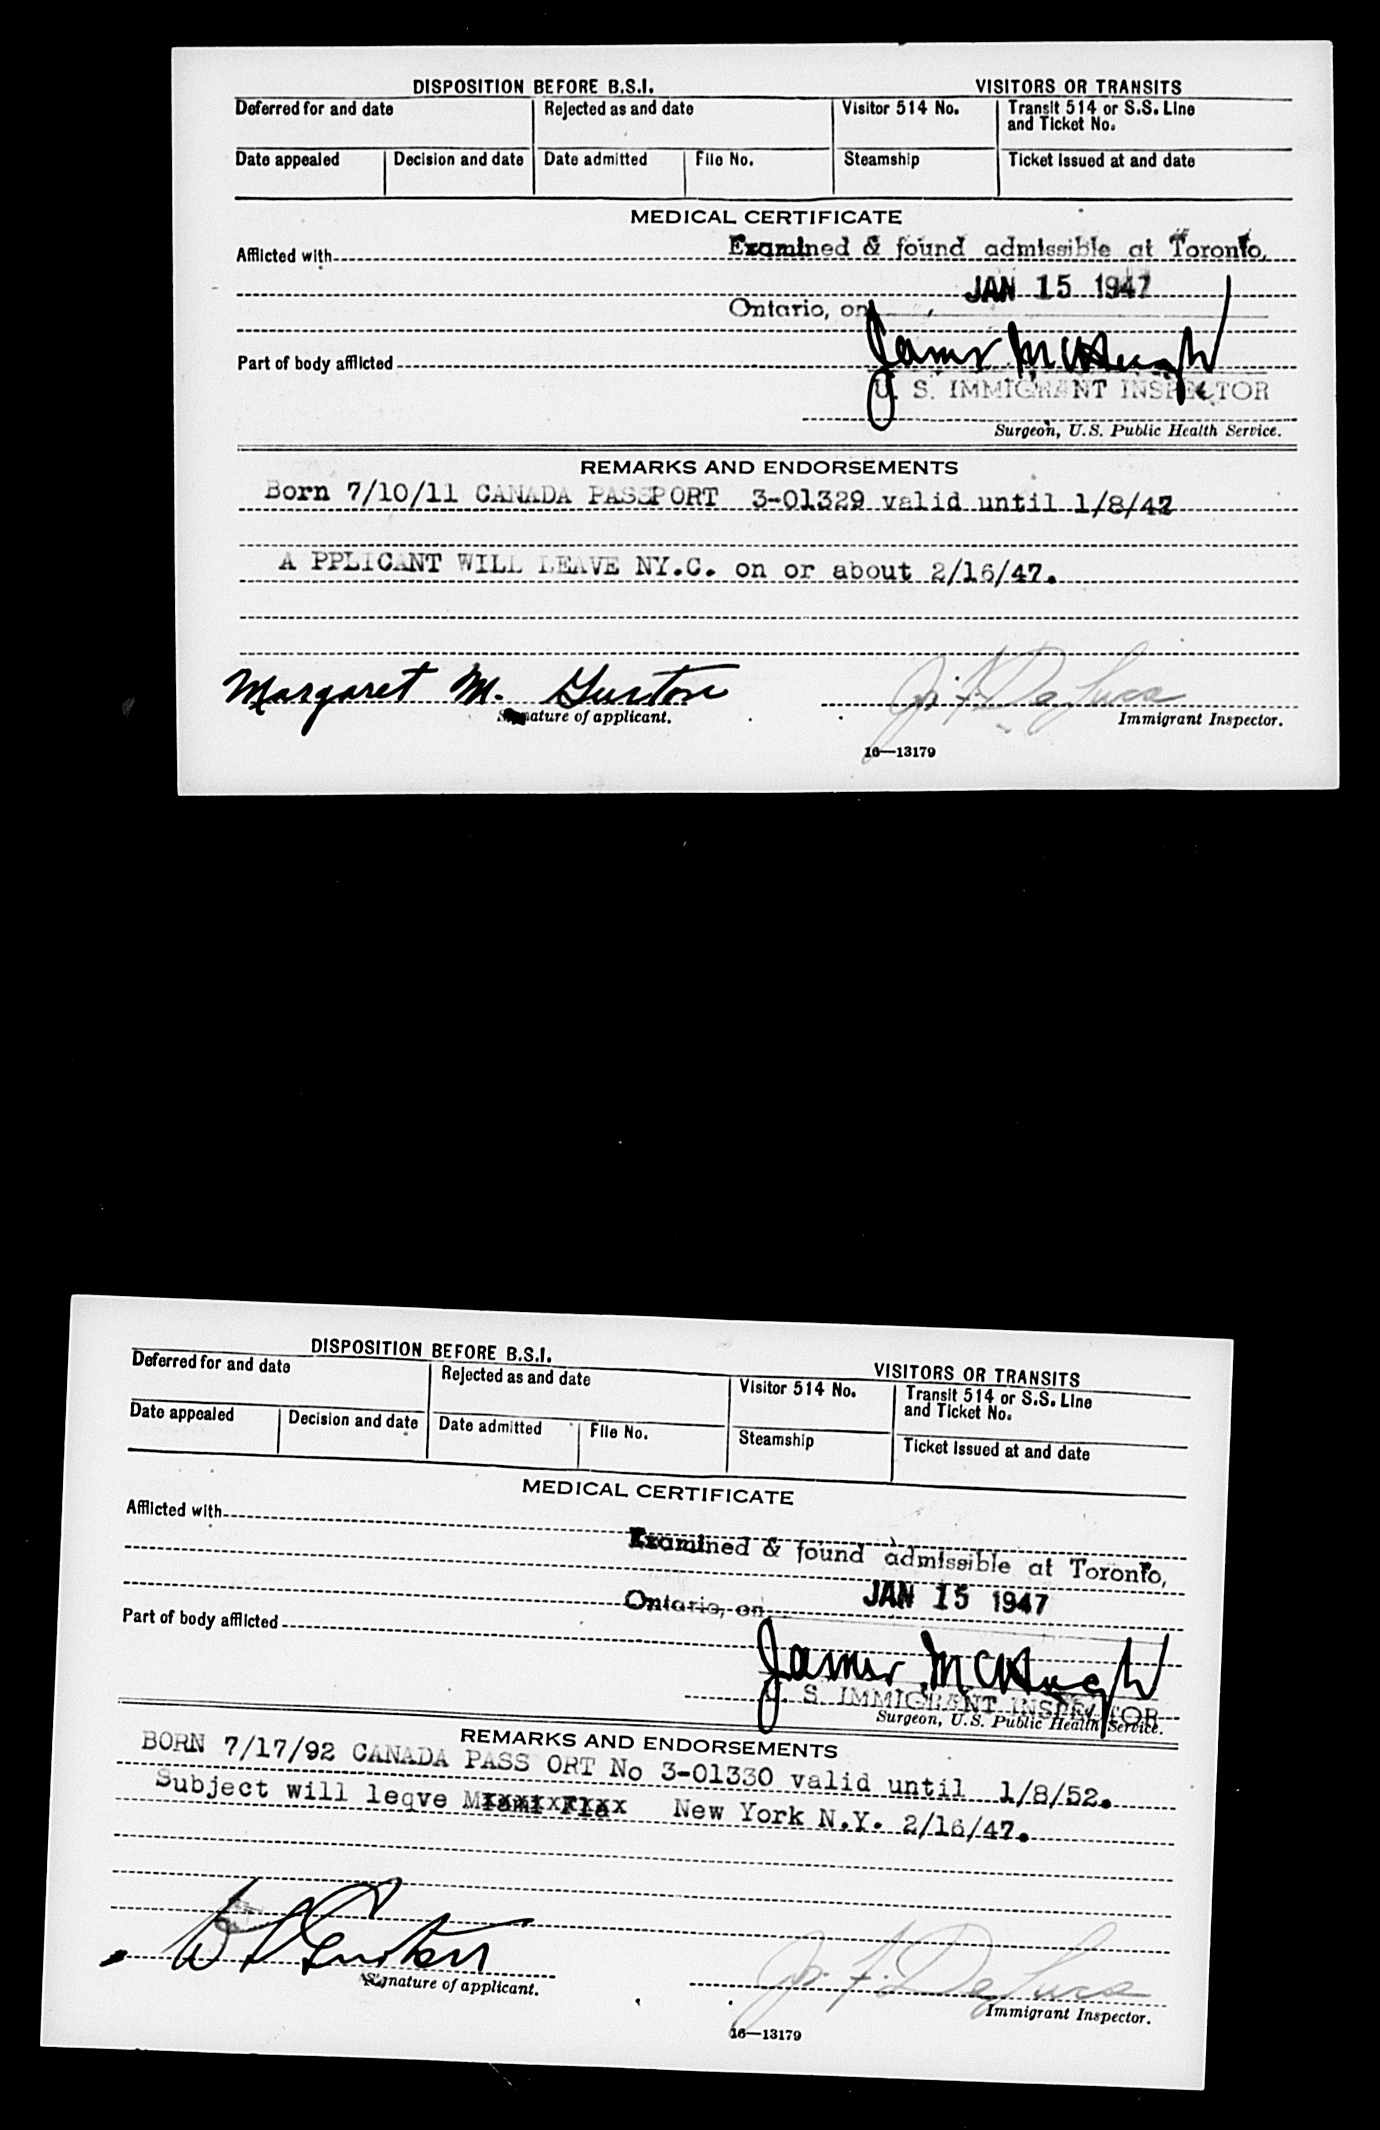 DISPOSITION BEFORE B.S.I. VISITORS OR TRANSITS
Deferred for and date Rejected as and date Visitor 514 No. Transit 514 or S.S. Line
and Ticket No.
Date appealed Decision and date Date admitted File No. Steamship Ticket issued at and date
MEDICAL CERTIFICATE
Afflicted with Examined & found admissible at Toronto,
JAN 15 1947
Ontario, on
James McHugh
Part of body afflicted
U. S. IMMIGRANT INSPECTOR
Surgeon, U.S. Public Health Service.
REMARKS AND ENDORSEMENTS
Born 7/10/11 CANADA PASSPORT 3-01329 valid until
A PPLICANT WILL LEAVE NY.C. on or about 2/16/47.
Margaret M. J. F. De Luca
Signature of applicant. Immigrant Inspector.
16—13179
DISPOSITION BEFORE B.S.I. VISITORS OR TRANSITS
Deferred for and date Rejected as and date Visitor 514 No. Transit 514 or S.S. Line
and Ticket No.
Date appealed Decision and date Date admitted File No. Steamship Ticket issued at and date
MEDICAL CERTIFICATE
Afflicted with Examined & found admissible at Toronto,
JAN 15 1947
Ontario, on
Part of body afflicted James McHugh
U. S. IMMIGRANT INSPECTOR
Surgeon, U.S. Public Health Service.
REMARKS AND ENDORSEMENTS
BORN 7/17/92 CANADA PASS ORT No 3-01330 valid until 1/8/52.
Subject will leave Miami Fla New York N.Y. 2/16/47.
J. F. De Luca
Signature of applicant. Immigrant Inspector.
16—13179